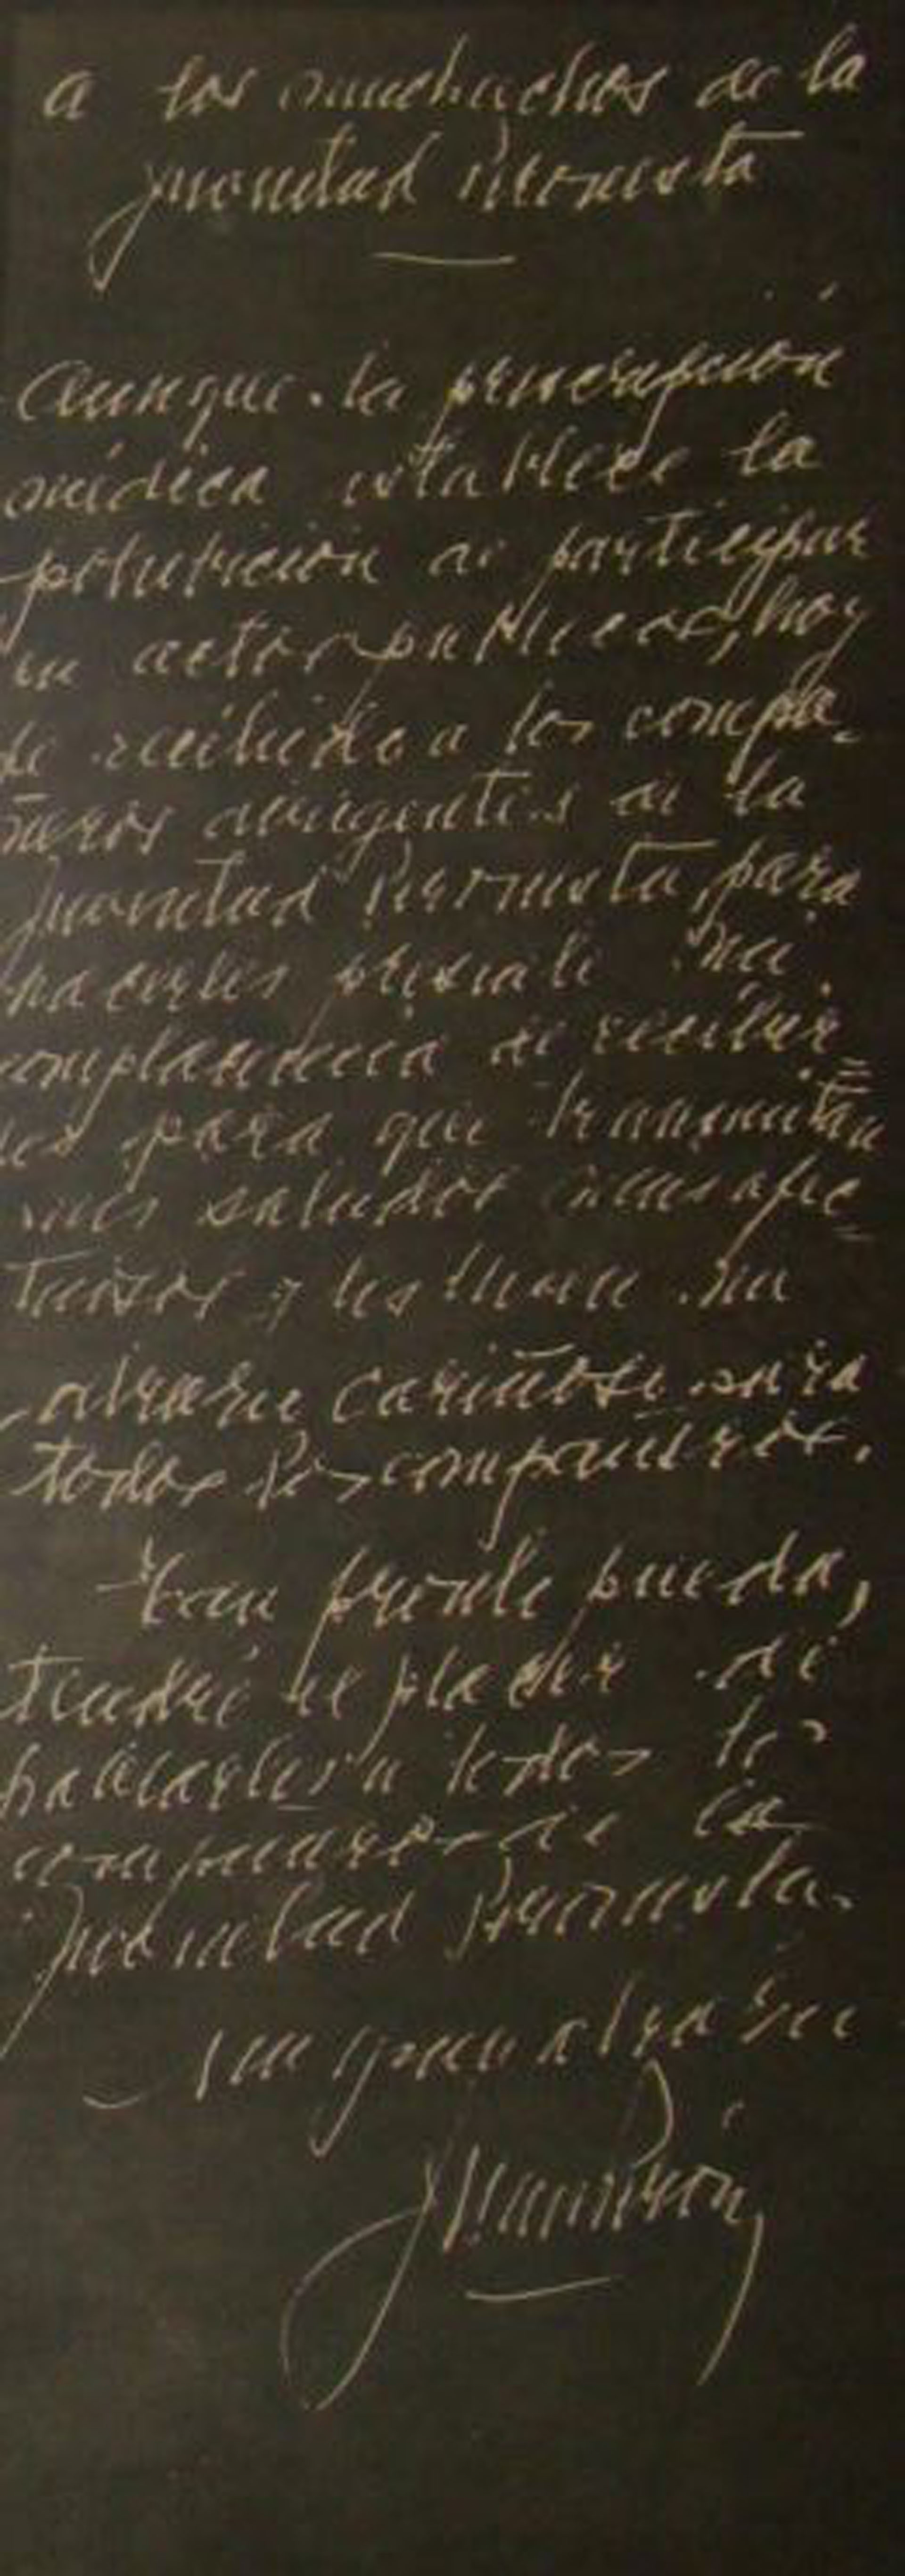 a los muchachos de la
juventud Peronista
Aunque la prescripción
médica establece la
prohibición de participar
en actos publicos, hoy
he recibido a los compa-
ñeros dirigentes de la
Juventud Peronista para
hacerles presente mi
complacencia de recibir=
les para que transmitan
mis saludos mas afec=
tuosos y les lleven mi
abrazo cariñoso para
todos los compañeros.
En cuanto pueda,
tendré el placer de
hablarles a todos los
compañeros de la
Juventud Peronista.
Un gran abrazo
Juan Perón